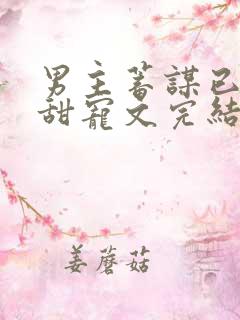 男主蓄謀已
甜寵文完結
姜蘑菇